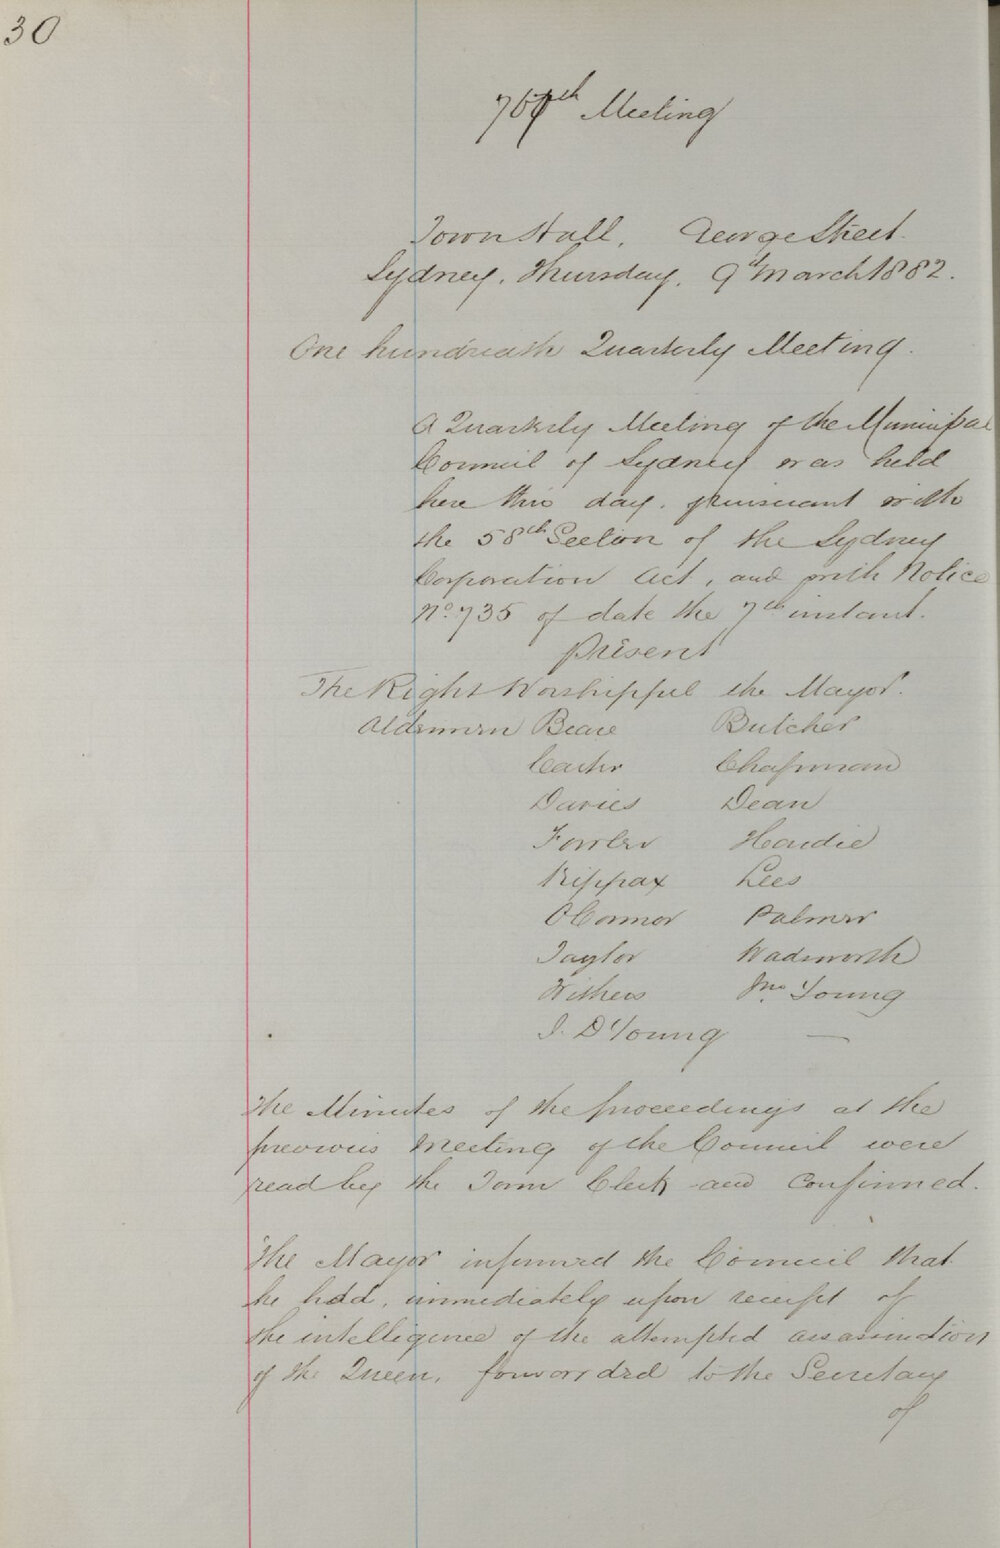 30
Meeting
Town Hall, George Street.
Sydney, Thursday, 9th March 1882.
One hundredth Quarterly Meeting.
A Quarterly Meeting of the Municipal
Council of Sydney was held
here this day, pursuant with
the 58th Section of the Sydney
Corporation Act, and with Notice
No. 735 of date the 7th instant.
Present
The Right Worshipful the Mayor.
Aldermen Beare Butcher
Carter Chapman
Davies Dean
Fowler Hardie
Kippax Lees
O'Connor Palmer
Taylor Wadsworth
Withers Jno. Young
J. D Young —
The Minutes of the proceedings at the
previous Meeting of the Council were
read by the Town Clerk and Confirmed.
The Mayor informed the Council that
he had, immediately upon receipt of
the intelligence of the attempted assassination
of the Queen, forwarded to the Secretary
of